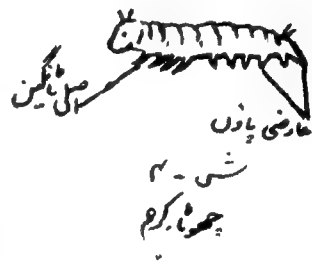 اصل ٹانگیں
عارضی پاؤں
چھوٹا کرم